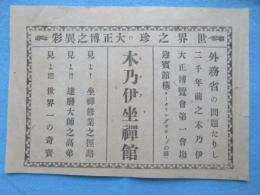 世界之珍。大正博之異彩
外務省の問題たりし
二千年前之木乃伊
大正博覽會第一會場
迎賓館橫
木乃伊坐禪館
見よ！坐禪修業之徑路
見よ！！達磨大師之高弟
見よ！！！世界一の奇寶